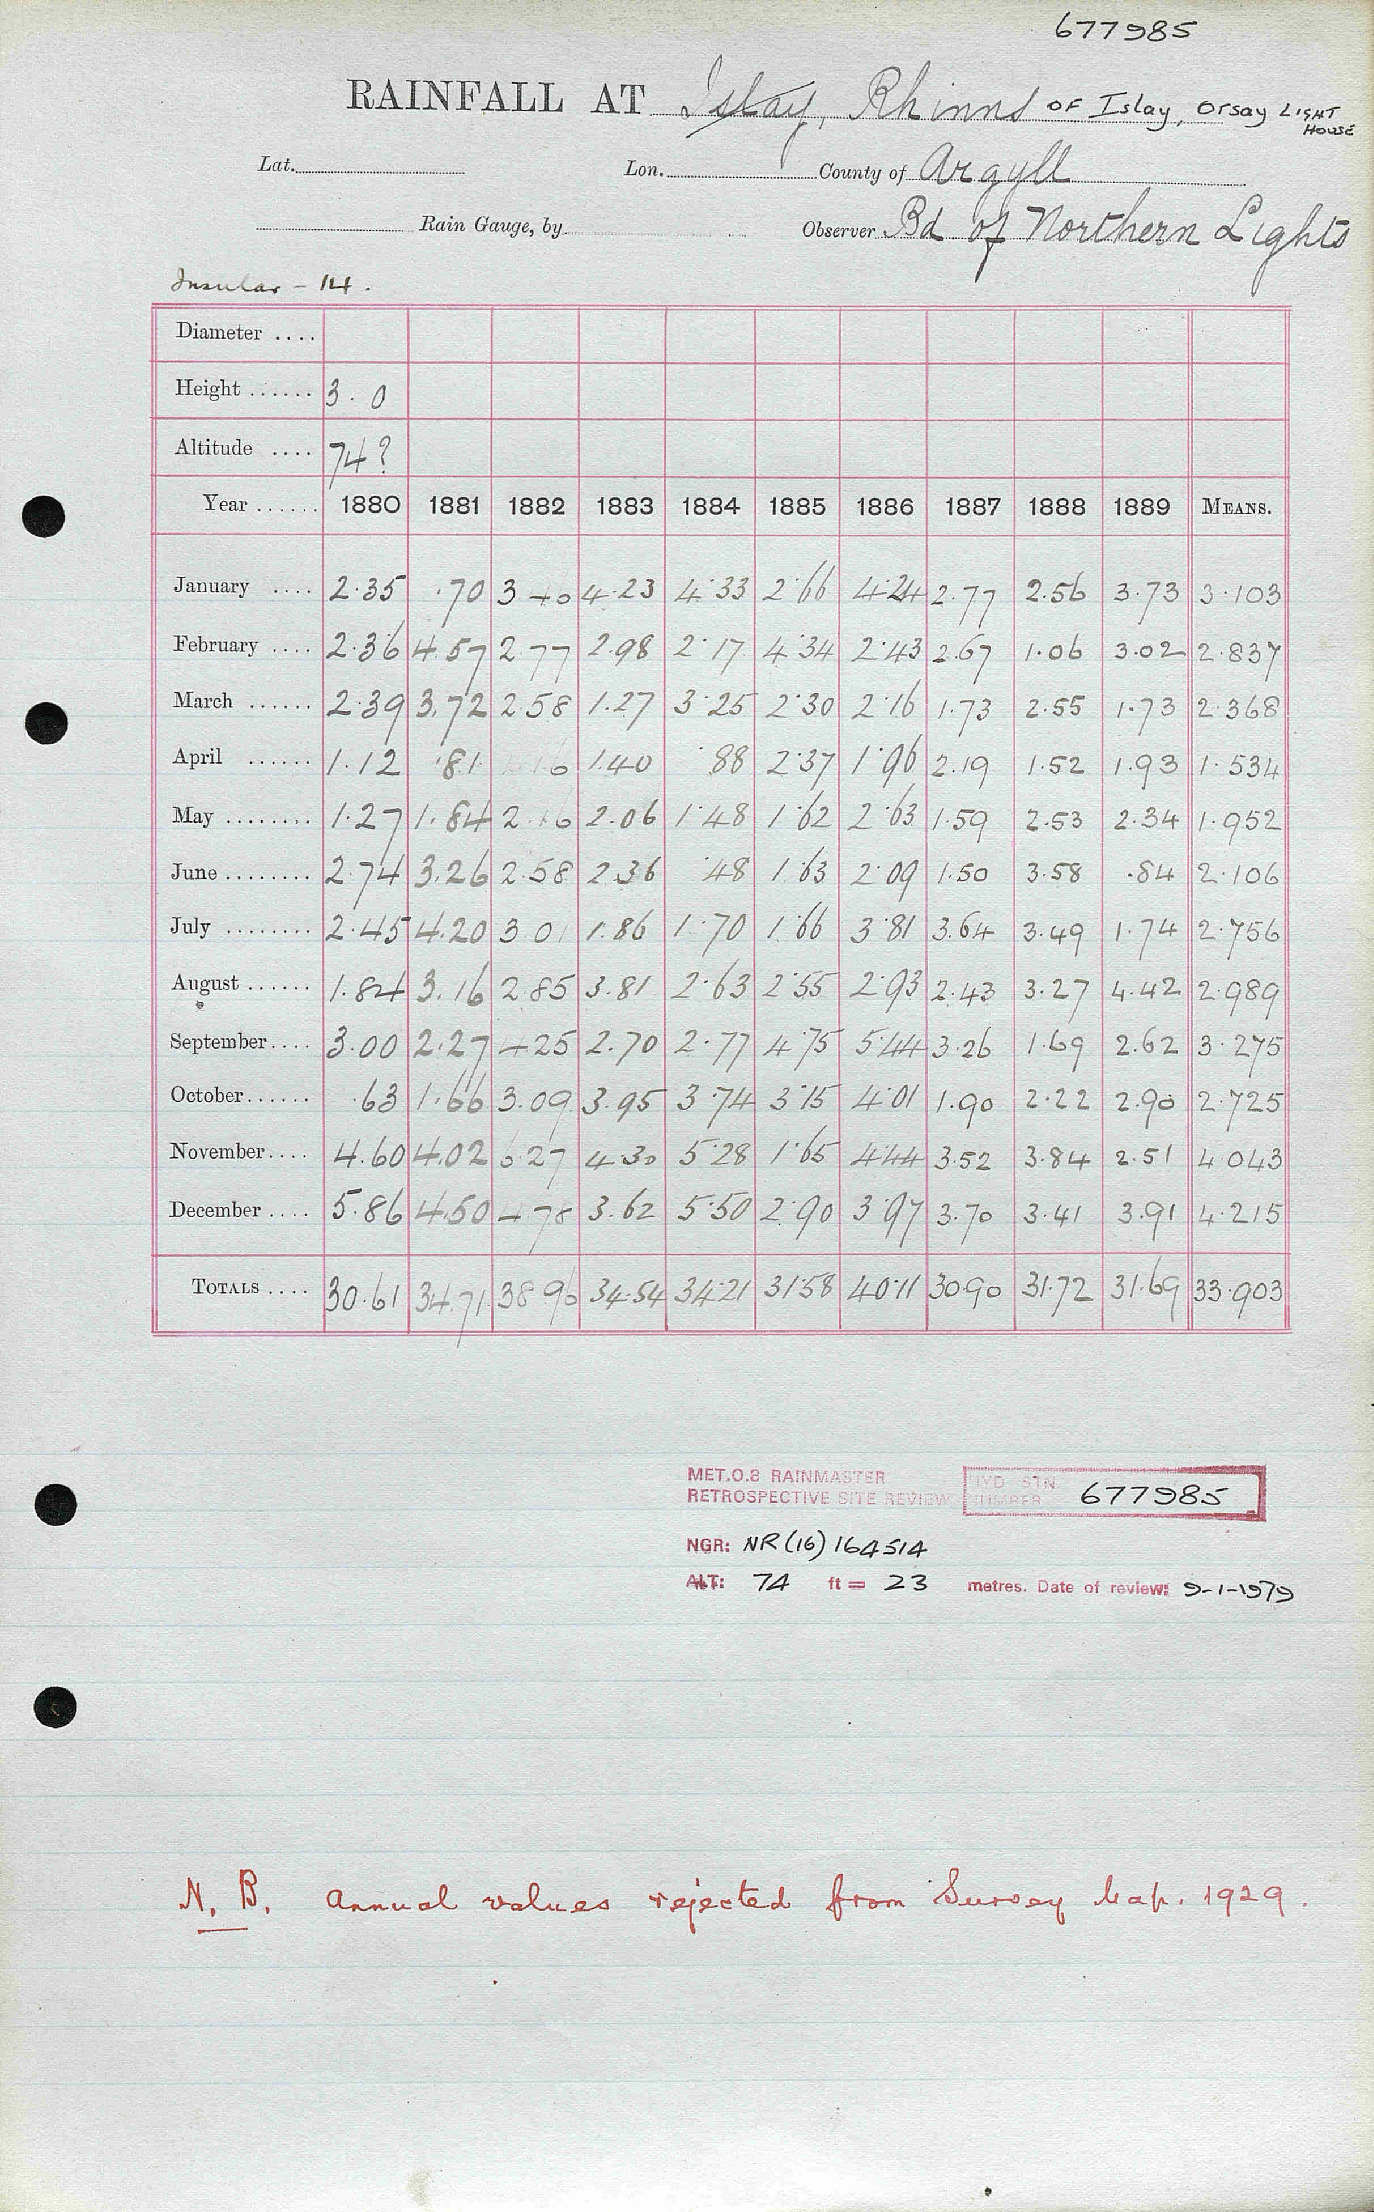 677985
RAINFALL AT Islay, Rhinns OF Islay, Orsay LIGHT HOUSE
Lat. Lon. County of Argyll
Rain Gauge, by Observer Bd of Northern Lights
Insular - 14.
Diameter ....
Height ...... 3.0
Altitude .... 74?
Year ...... 1880 1881 1882 1883 1884 1885 1886 1887 1888 1889 MEANS.
January .... 2.35 .70 3.46 4.23 4.33 2.66 4.24 2.77 2.56 3.73 3.103
February .... 2.36 4.57 2.77 2.98 2.17 4.34 2.43 2.67 1.06 3.02 2.837
March ...... 2.39 3.72 2.58 1.27 3.25 2.30 2.16 1.73 2.55 1.73 2.368
April ...... 1.12 .81 1.16 1.40 .88 2.37 1.96 2.19 1.52 1.93 1.534
May ........ 1.27 1.84 2.16 2.06 1.48 1.62 2.63 1.59 2.53 2.34 1.952
June ........ 2.74 3.26 2.58 2.36 .48 1.63 2.09 1.50 3.58 .84 2.106
July ........ 2.45 4.20 3.01 1.86 1.70 1.66 3.81 3.64 3.49 1.74 2.756
August ...... 1.84 3.16 2.85 3.81 2.63 2.55 2.93 2.43 3.27 4.42 2.989
September.... 3.00 2.27 4.25 2.70 2.77 4.75 5.44 3.26 1.69 2.62 3.275
October...... .63 1.66 3.09 3.95 3.74 3.15 4.01 1.90 2.22 2.90 2.725
November.... 4.60 4.02 6.27 4.30 5.28 1.65 4.44 3.52 3.84 2.51 4.043
December .... 5.86 4.50 4.78 3.62 5.50 2.90 3.97 3.70 3.41 3.91 4.215
TOTALS .... 30.61 34.71 38.96 34.54 34.21 31.58 40.11 30.90 31.72 31.69 33.903
MET.O.8 RAINMASTER
RETROSPECTIVE SITE REVIEW
HYD STN NUMBER 677985
NGR: NR(16)164514
ALT: 74 ft = 23 metres. Date of review: 9-1-1979
N.B. Annual values rejected from Survey Map. 1929.